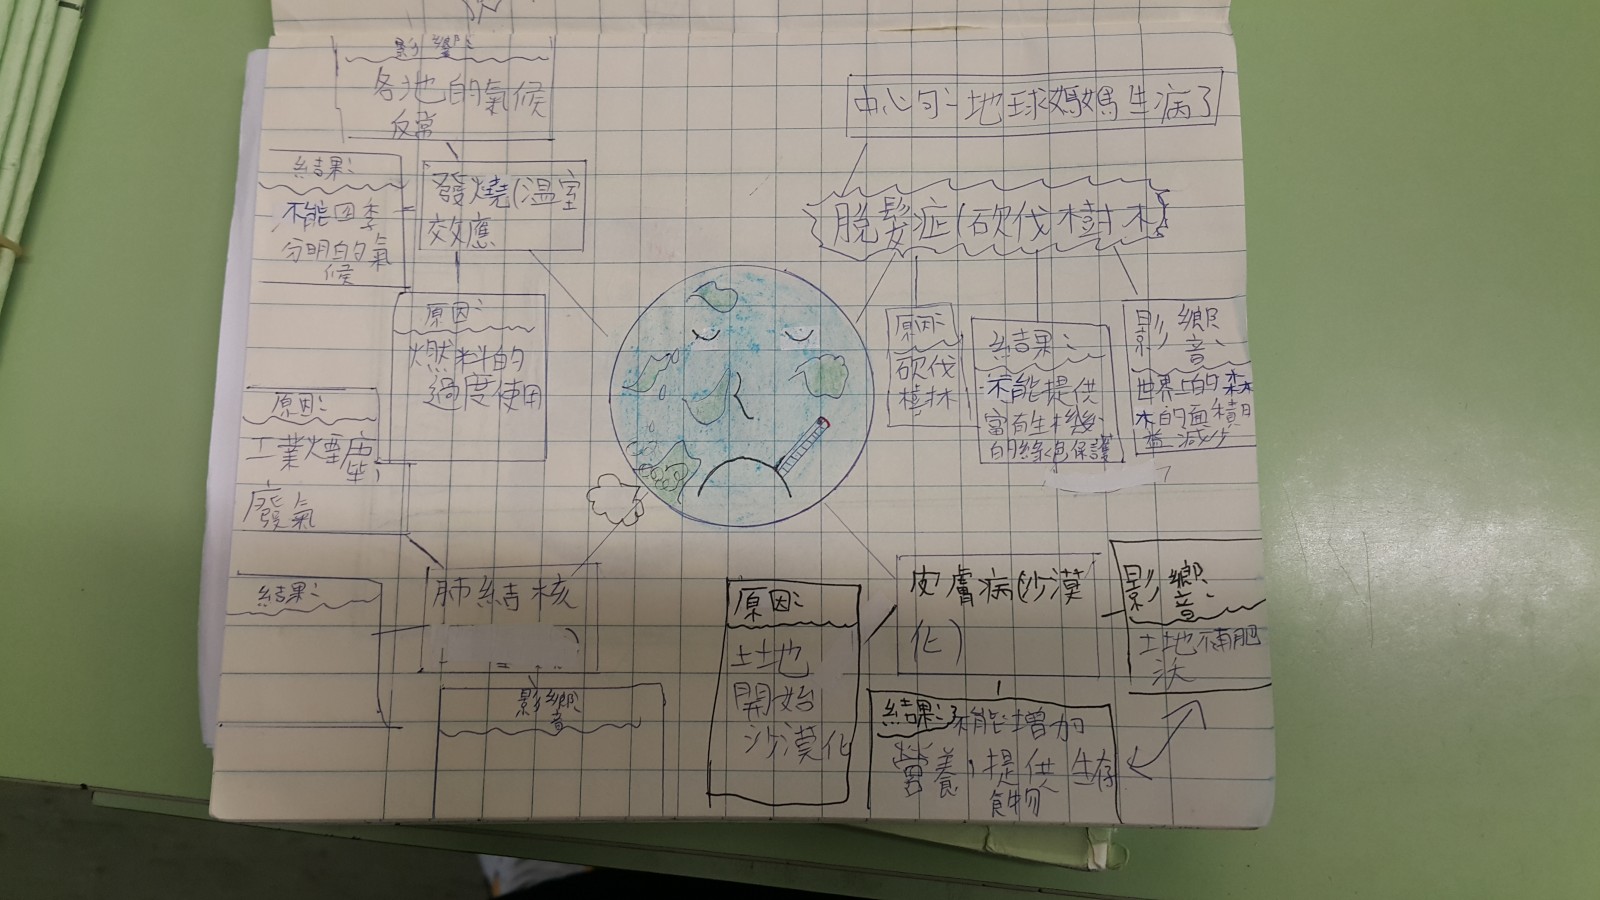 影響:
各地的氣候
反常
中心句:地球媽媽生病了
結果:
不能四季
分明的氣
候
發燒(溫室
效應
脫髮症(砍伐樹木
原因:
燃料的
過度使用
原因:
砍伐
樹林
結果:
不能提供
富有生機
的綠色保護
影響:
世界上的森
木的面積日
益減少
原因:
工業煙塵,
廢氣
肺結核
結果:
影響
原因:
土地
開始
沙漠化
皮膚病(沙漠
化)
影響:
土地不肥
沃
結果:不能增加
營養,提供生存
食物